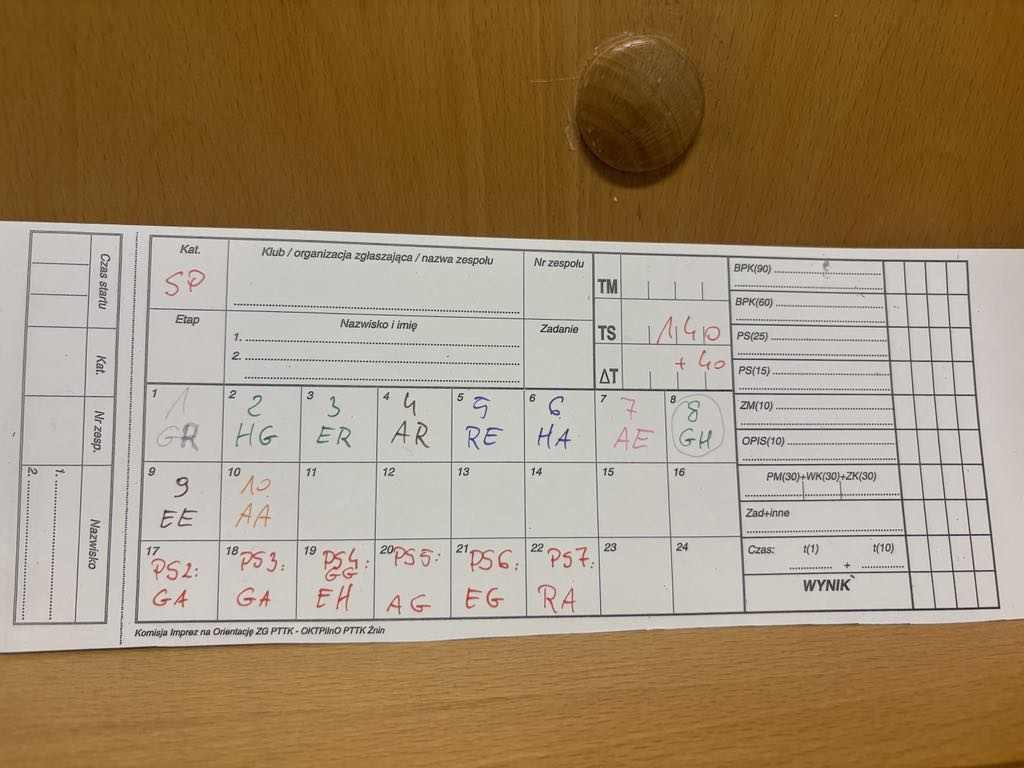 Czas startu
Kat.
Nr zesp.
Nazwisko
1.
2.
Kat.
SP
Klub / organizacja zgłaszająca / nazwa zespołu
Nr zespołu
Etap
Nazwisko i imię
1.
2.
Zadanie
TM
TS 140
ΔT +40
BPK(90)
BPK(60)
PS(25)
PS(15)
ZM(10)
OPIS(10)
PM(30)+WK(30)+ZK(30)
Zad+inne
Czas: t(1) + t(10)
WYNIK
1 2 3 4 5 6 7 8
1 2 3 4 5 6 7 8
GR HG ER AR RE HA AE GH
9 10 11 12 13 14 15 16
9 10
EE AA
17 18 19 20 21 22 23 24
PS2: PS3: PS4: PS5: PS6: PS7:
GG
GA GA EH AG EG RA
Komisja Imprez na Orientację ZG PTTK - OKTPiInO PTTK Żnin